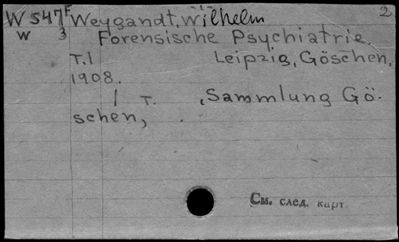 W 547F Weygandt, Wilhelm 2
W 3 Forensische Psychiatrie.
T.1 Leipzig, Göschen,
1908.
1 T. Sammlung Gö-
schen,
См. след. карт.